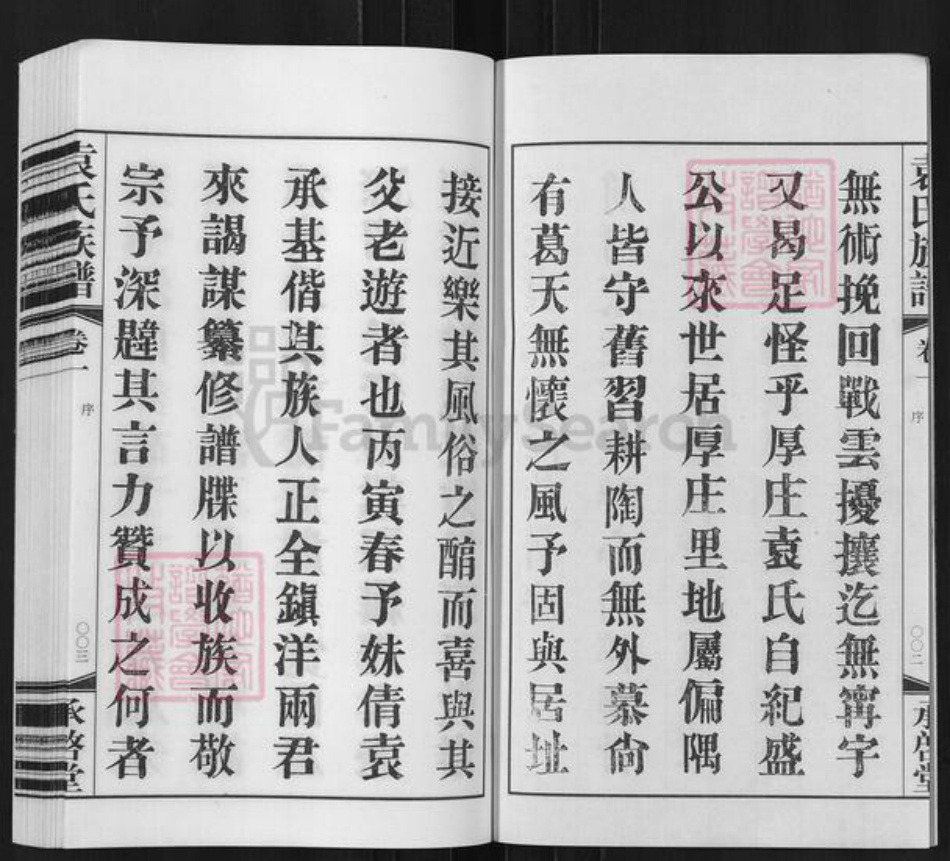 無術挽回戰雲擾攘迄無寗字
又曷足怪乎厚庄袁氏自紀盛
公以來世居厚庄里地屬偏隅
人皆守舊習耕陶而無外慕尙
有葛天無懷之風予固與居址
袁氏族譜
卷一
序
〇〇二
承啓堂
接近樂其風俗之酣而喜與其
父老遊者也丙寅春予妹倩袁
承基偕其族人正全鎭洋兩君
來謁謀纂修譜牒以收族而敬
宗予深韙其言力贊成之何者
袁氏族譜
卷一
序
〇〇三
承啓堂
FamilySearch